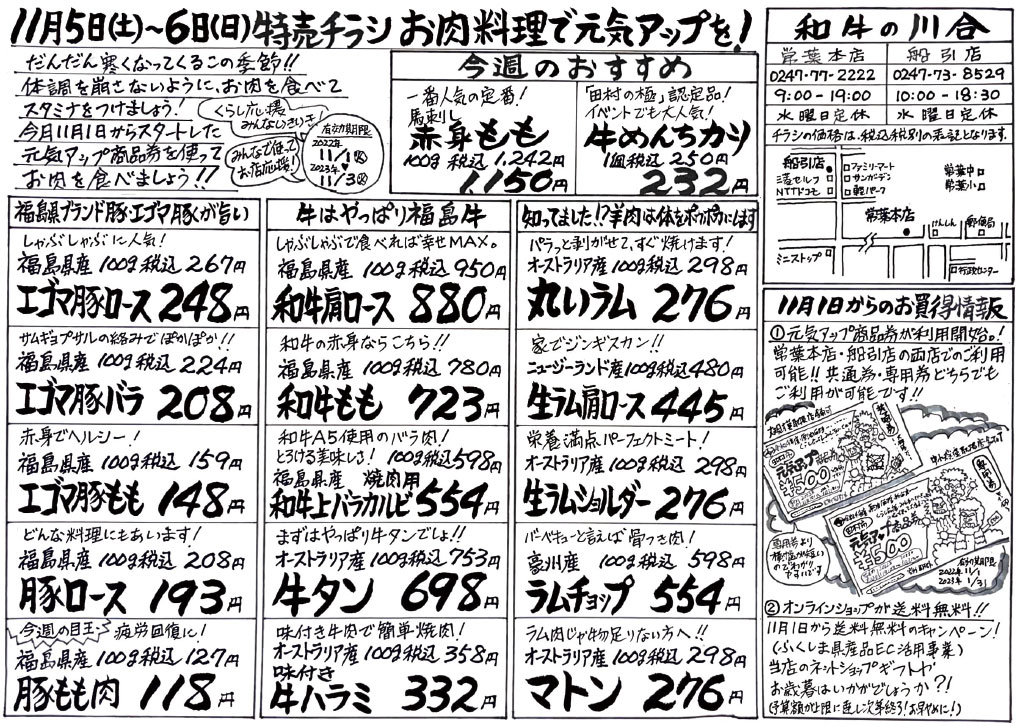 11月5日(土)〜6日(日)特売チラシ お肉料理で元気アップを!
だんだん寒くなってくるこの季節!!
体調を崩さないように、お肉を食べて
スタミナをつけましょう!
今月11月1日からスタートした
元気アップ商品券を使って
お肉を食べましょう!!
くらし応援
みんないさいき!
みんなで使って
お店応援!
有効期限
2022年
11/1(火)
2023年
1/31(火)
今週のおすすめ
一番人気の定番!
馬刺し
赤身もも
100g 税込 1,242円
1,150円
「田村の極」認定品!
イベントでも大人気!
牛めんちカツ
1個 税込 250円
232円
和牛の川合
常葉本店
船引店
0247-77-2222
0247-73-8529
9:00-19:00
10:00-18:30
水曜日定休
水曜日定休
チラシの価格は、税込税別の表記となります。
船引店
三菱セルフ
NTTドコモ
ファミリーマート
サンガーデン
軽パーク
常葉中
常葉小
常葉本店
けんしん
郵便局
ミニストップ
行政センター
福島県ブランド豚・エゴマ豚が旨い
しゃぶしゃぶに人気!
福島県産 100g税込 267円
エゴマ豚ロース 248円
サムギョプサルの絡みでぽかぽか!!
福島県産 100g税込 224円
エゴマ豚バラ 208円
赤身でヘルシー!
福島県産 100g税込 159円
エゴマ豚もも 148円
どんな料理にもあいます!
福島県産 100g税込 208円
豚ロース 193円
今週の目玉 疲労回復に!
福島県産 100g税込 127円
豚もも肉 118円
牛はやっぱり福島牛
しゃぶしゃぶで食べれば幸せMAX。
福島県産 100g税込 950円
和牛肩ロース 880円
和牛の赤身ならこちら!!
福島県産 100g税込 780円
和牛もも 723円
和牛A5使用のバラ肉!
とろける美味しさ! 100g税込 598円
福島県産 焼肉用
和牛上バラカルビ 554円
まずはやっぱり牛タンでしょ!!
オーストラリア産 100g税込 753円
牛タン 698円
味付き牛肉で簡単焼肉!
オーストラリア産 100g税込 358円
味付き
牛ハラミ 332円
知ってました!?羊肉は体をポカポカにします
パラっと剥がせて、すぐ焼けます!
オーストラリア産 100g税込 298円
丸いラム 276円
家でジンギスカン!!
ニュージーランド産 100g税込 480円
生ラム肩ロース 445円
栄養満点パーフェクトミート!
オーストラリア産 100g税込 298円
生ラムショルダー 276円
バーベキューと言えば骨つき肉!
豪州産 100g税込 598円
ラムチョップ 554円
ラム肉じゃ物足りない方へ!!
オーストラリア産 100g税込 298円
マトン 276円
11月1日からのお買得情報
①元気アップ商品券が利用開始。!
常葉本店・船引店の両店でのご利用
可能!! 共通券・専用券どちらでも
ご利用が可能です!!
元気アップ
¥500
専用券
元気アップ商品券
¥500
有効期限
2022年 11/1
2023年 1/31
②オンラインショップが送料無料!!
11月1日から送料無料のキャンペーン!
(ふくしま県産品EC活用事業)
当店のネットショップギフトで
お歳暮はいかがでしょうか?!
(予算額が上限に達し次第終了!お早めに!)